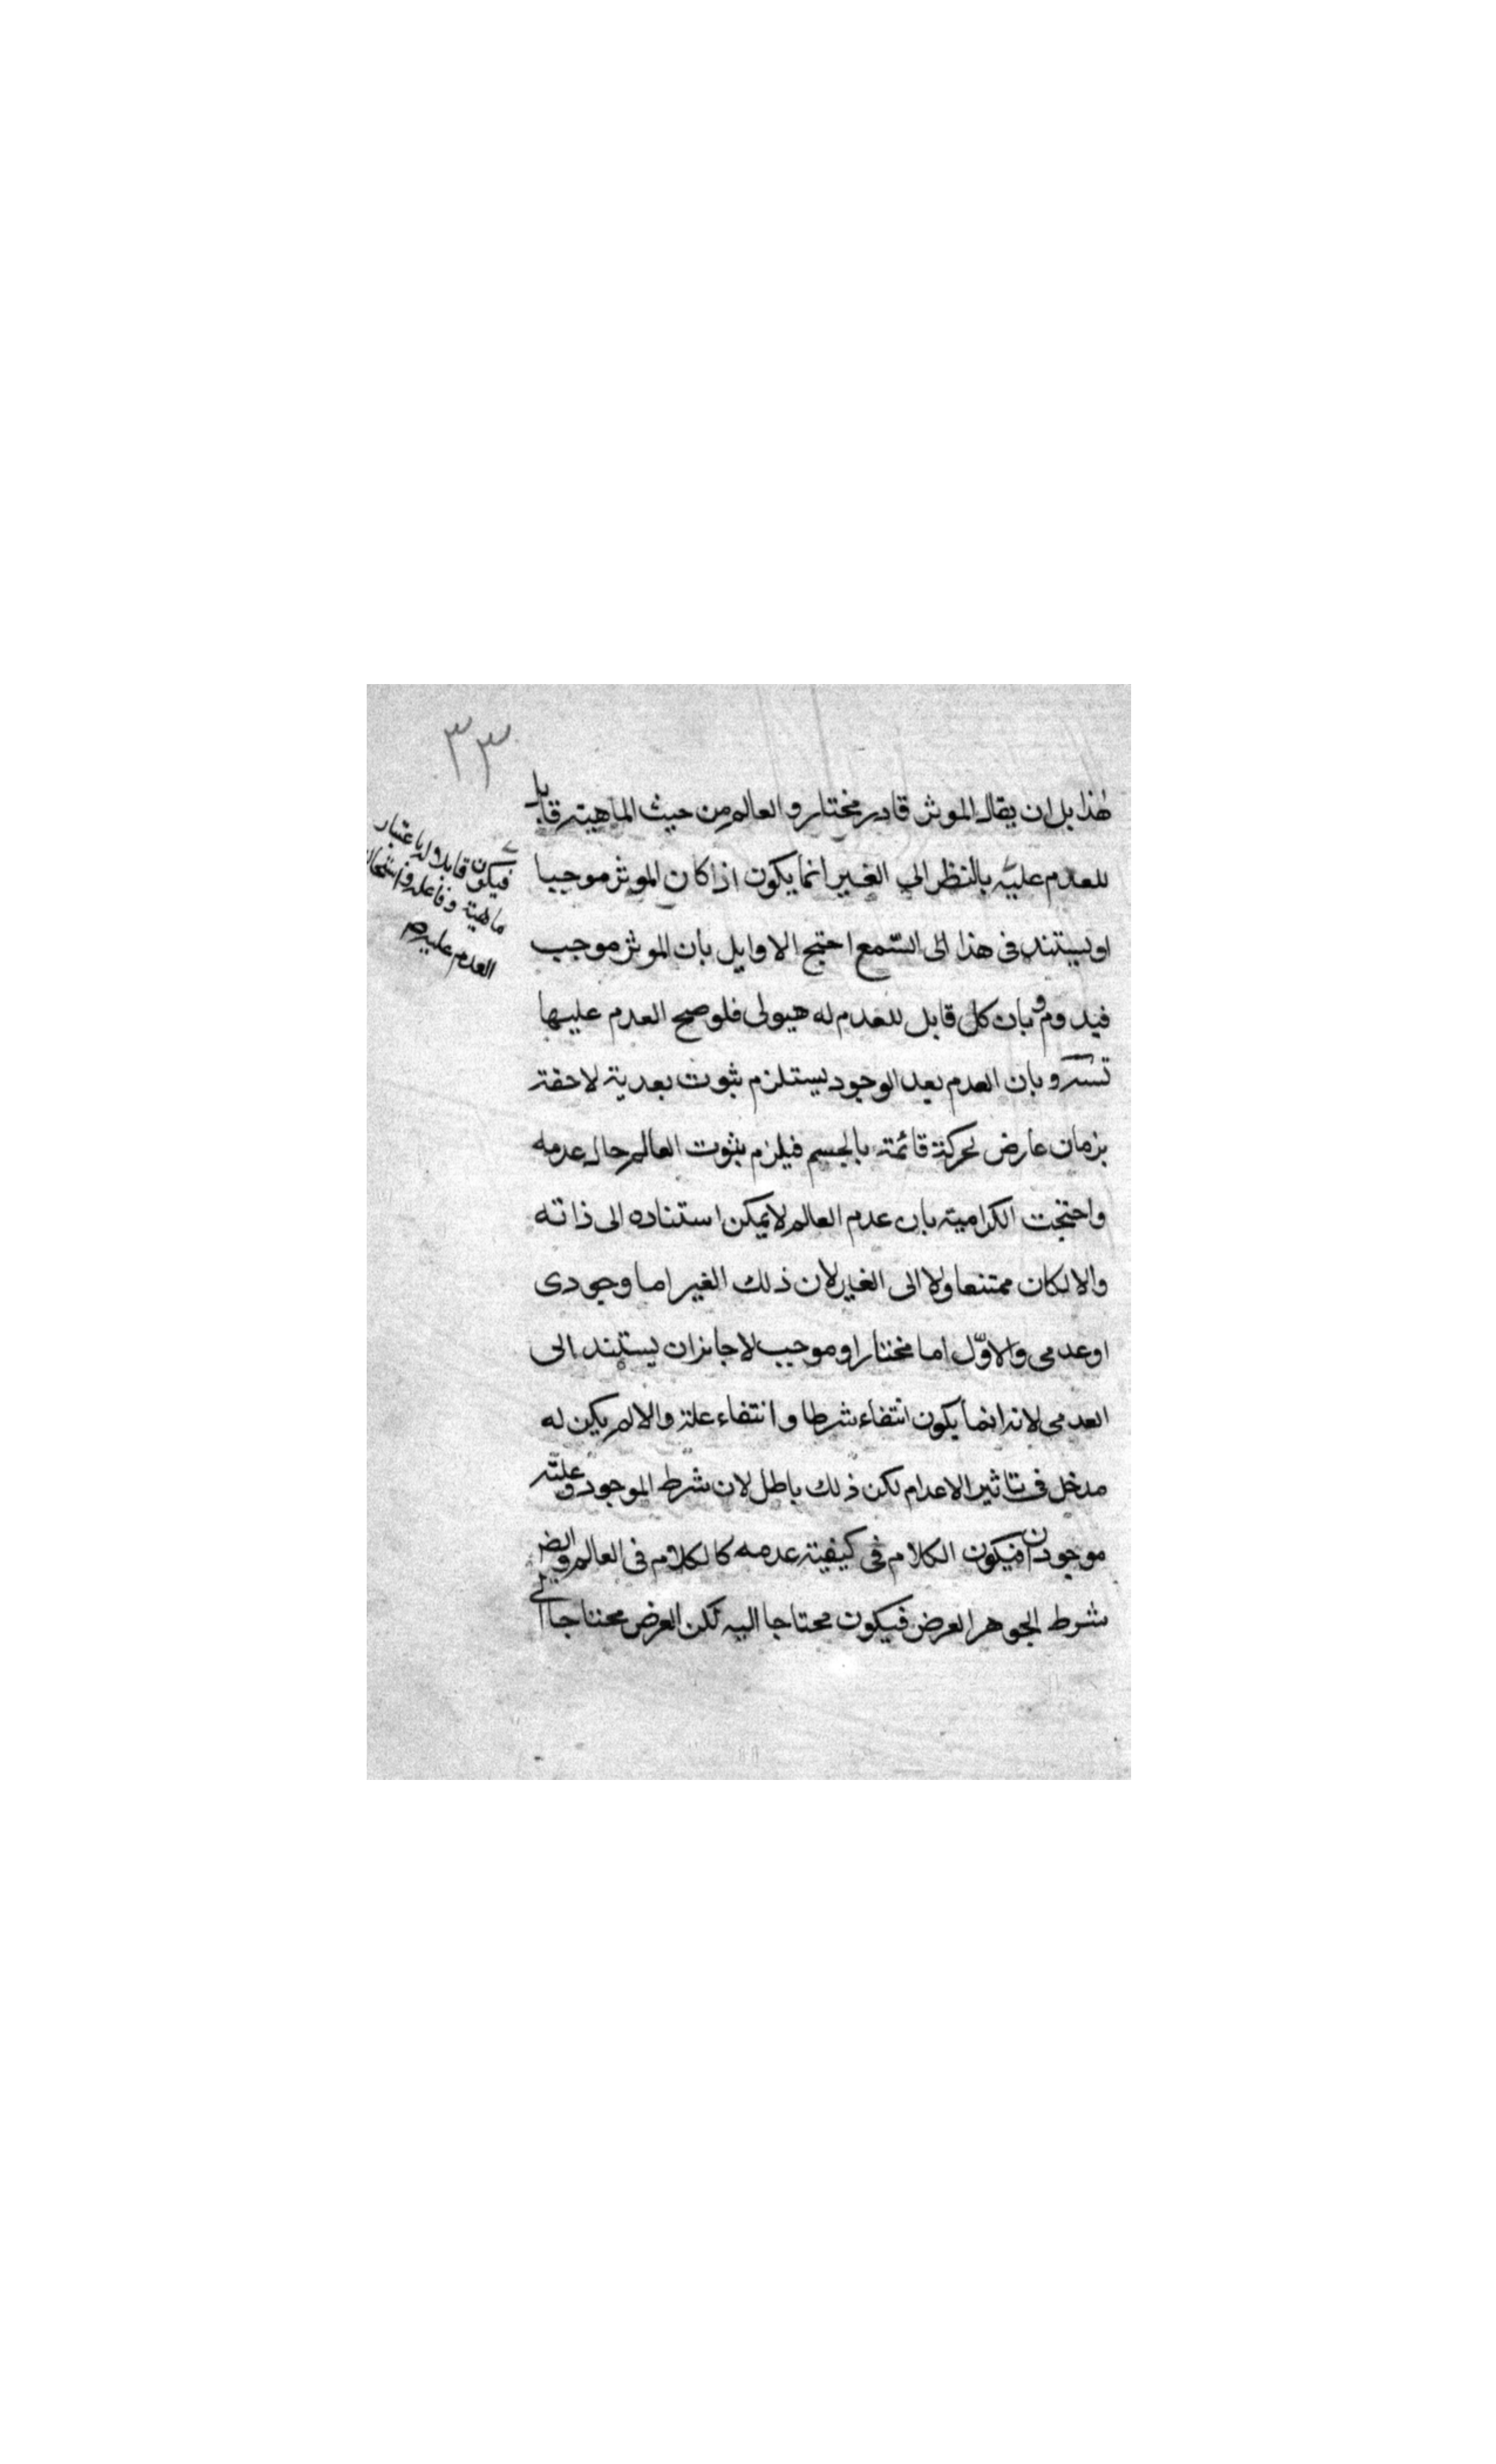 ٣٣
هذا بل ان يقال الموثر قادر مختار و العالم من حيث الماهية قابل
للعدم عليه بالنظر الى الغير انما يكون اذا كان الموثر موجبا
او يستند فى هذا الى السّمع احتج الاوايل بان الموثر موجب
فيدوم و بان كل قابل للعدم له هيولى فلو صح العدم عليها
تس و بان العدم بعد الوجود يستلزم ثبوت بعدية لاحقة
بزمان عارض لحركة قائمة بالجسم فيلزم ثبوت العالم حال عدمه
واحتجت الكرامية بان عدم العالم لا يمكن استناده الى ذاته
والا لكان ممتنعا ولا الى الغير لان ذلك الغير اما وجودى
او عدمى والاوّل اما مختار او موجب لا جائز ان يستند الى
العدمى لانه انما يكون انتفاء شرط او انتفاء علة والا لم يكن له
مدخل فى تاثير الاعدام لكن ذلك باطل لان شرط الموجود وعلته
موجودان فيكون الكلام فى كيفية عدمه كالكلام فى العالم وايض
شرط الجوهر العرض فيكون محتاجا اليه لكن العرض محتاجا الى
فيكون قابلا له باعتبار
ماهية وفاعله و
العدم عليه